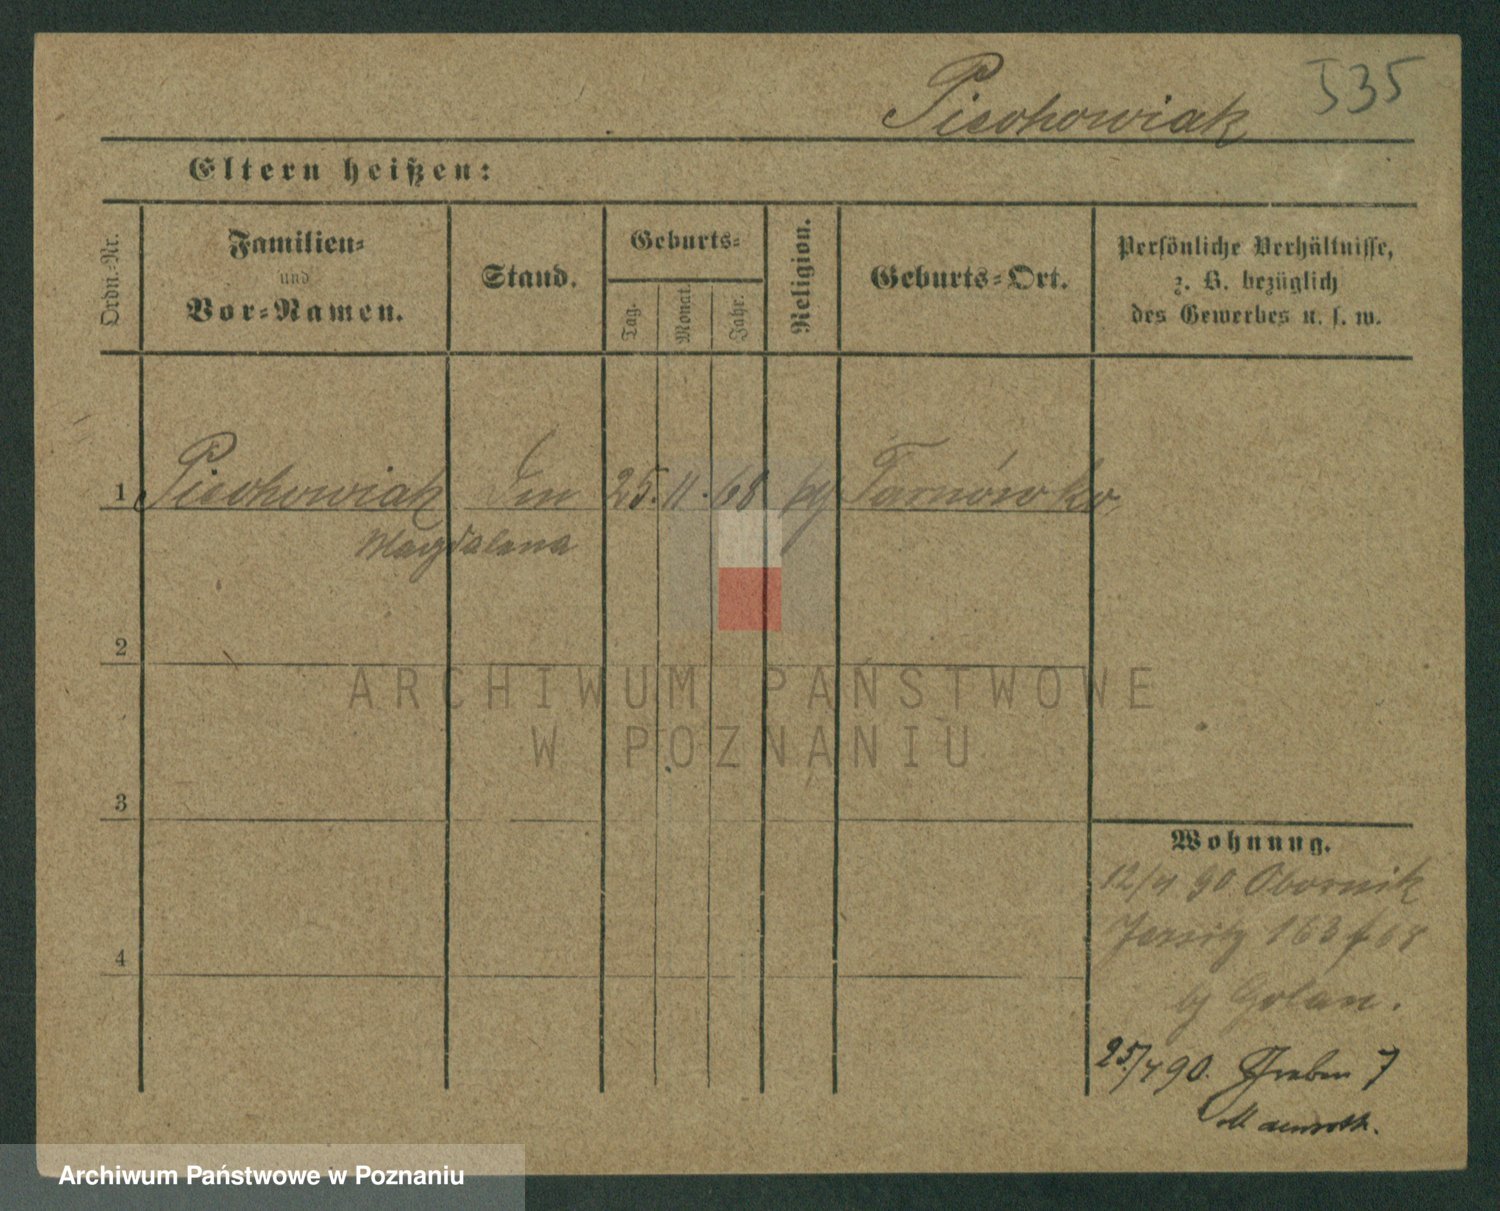 Piechowiak 535
Eltern heißen:
Ordn.-Nr.
Familien-
und
Vor-Namen.
Stand.
Geburts-
Tag.
Monat.
Jahr.
Religion.
Geburts-Ort.
Persönliche Verhältnisse,
z. B. bezüglich
des Gewerbes u. s. w.
1 Piechowiak 25. 11. 68 Tarnówko
Magdalena
2
3
4
ARCHIWUM PAŃSTWOWE
W POZNANIU
Wohnung.
12/4 90 Obornik
Jersitz 163
25/4 90. Graben 7
Archiwum Państwowe w Poznaniu